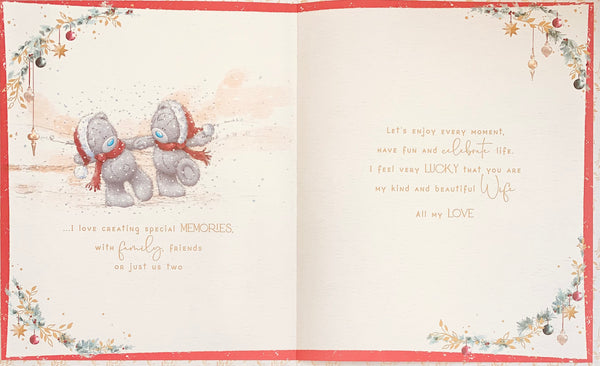 ...I love creating special MEMORIES,
with family, friends
or just us two
Let's enjoy every moment,
have fun and celebrate life.
I feel very LUCKY that you are
my kind and beautiful Wife
All my LOVE